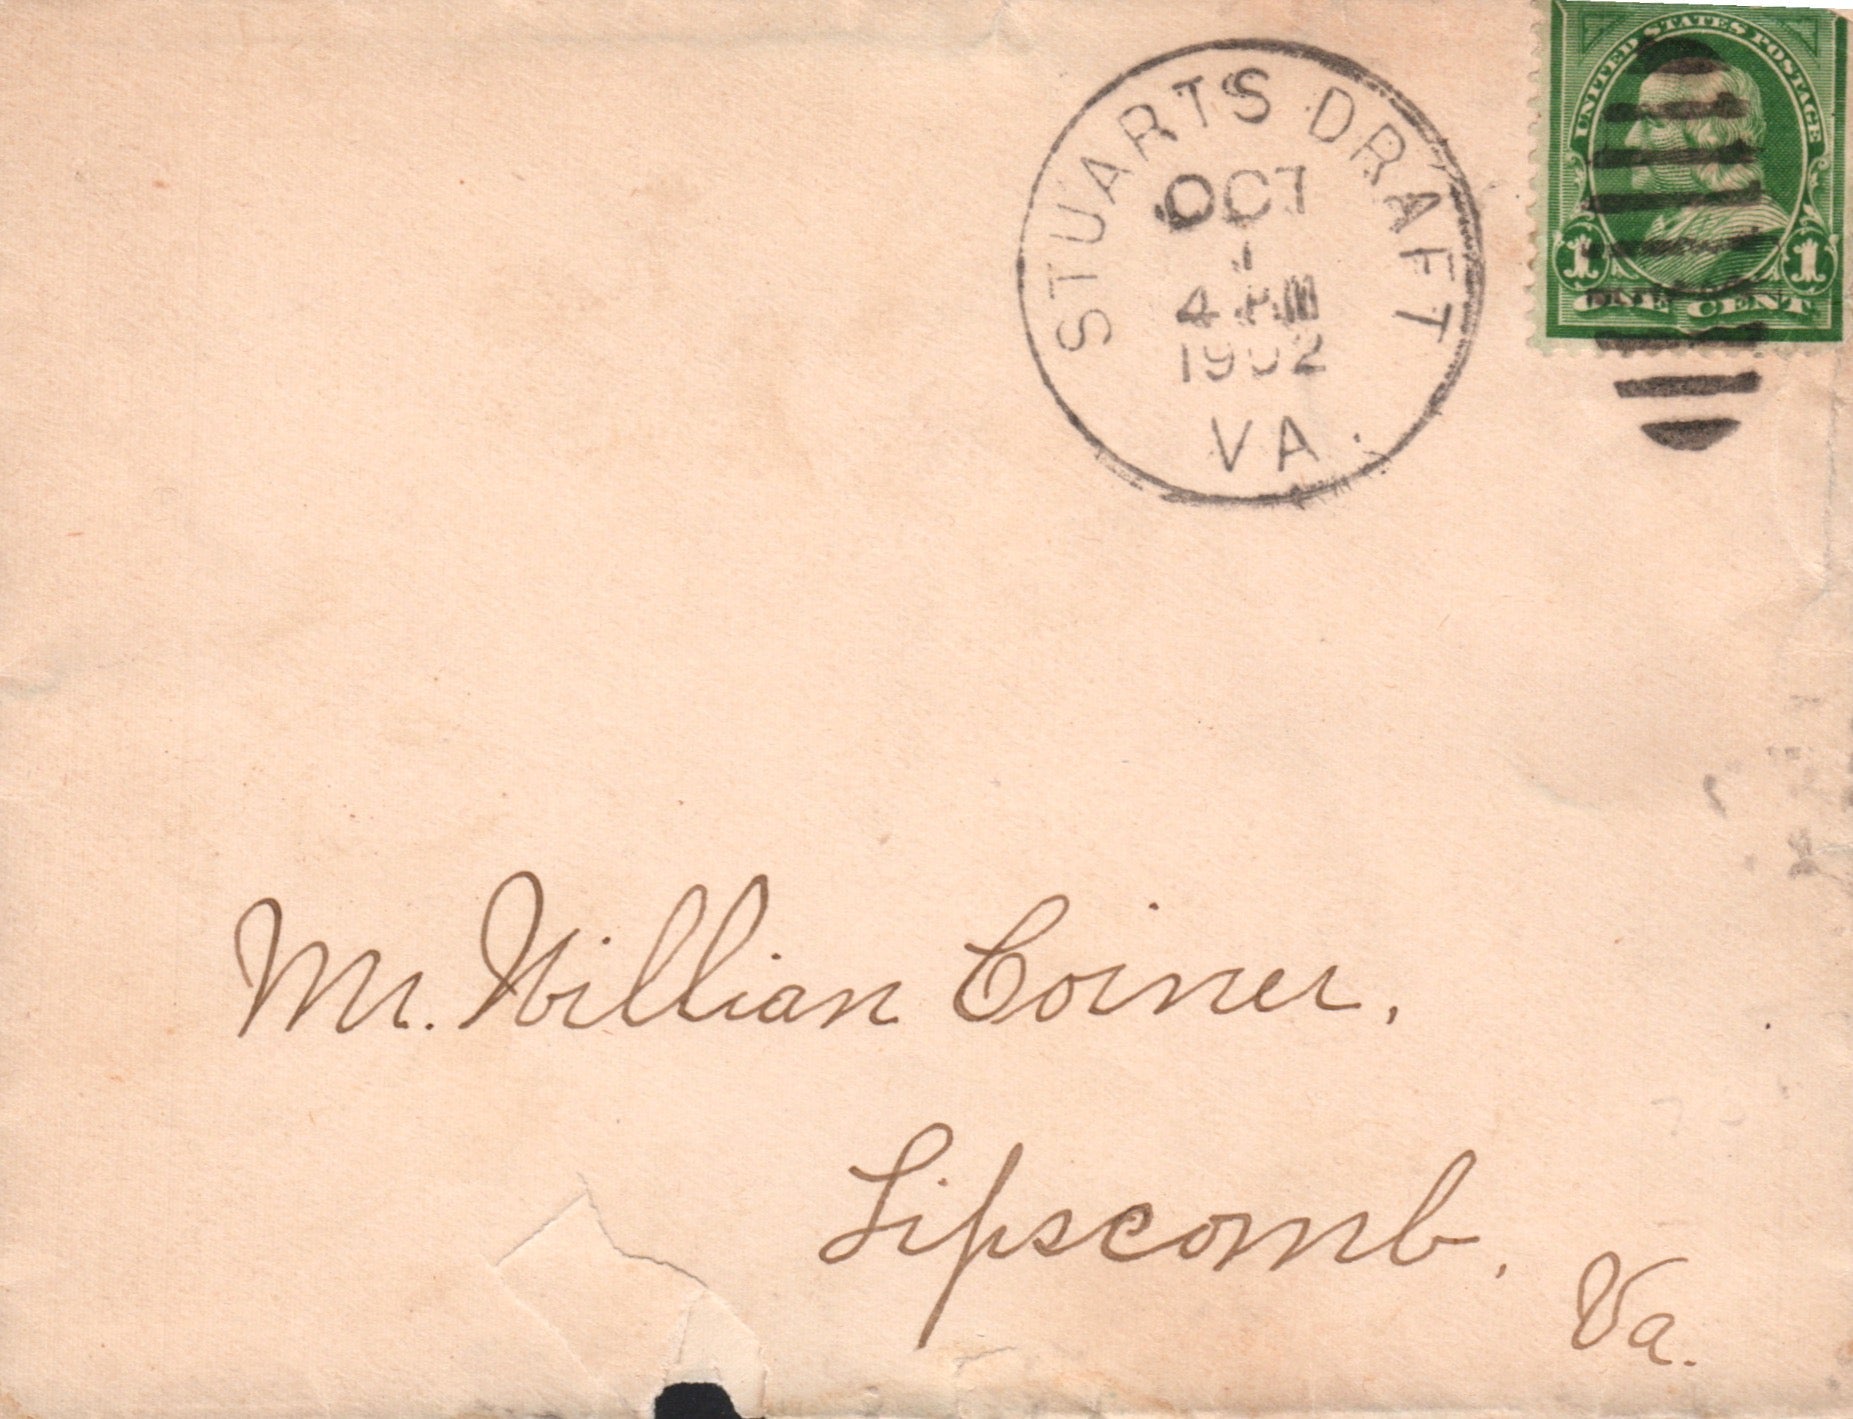 UNITED STATES POSTAGE
1 1
ONE CENT
STUARTS DRAFT
OCT
1
4 PM
1902
VA.
Mr. Willian Coiner,
Lipscomb,
Va.